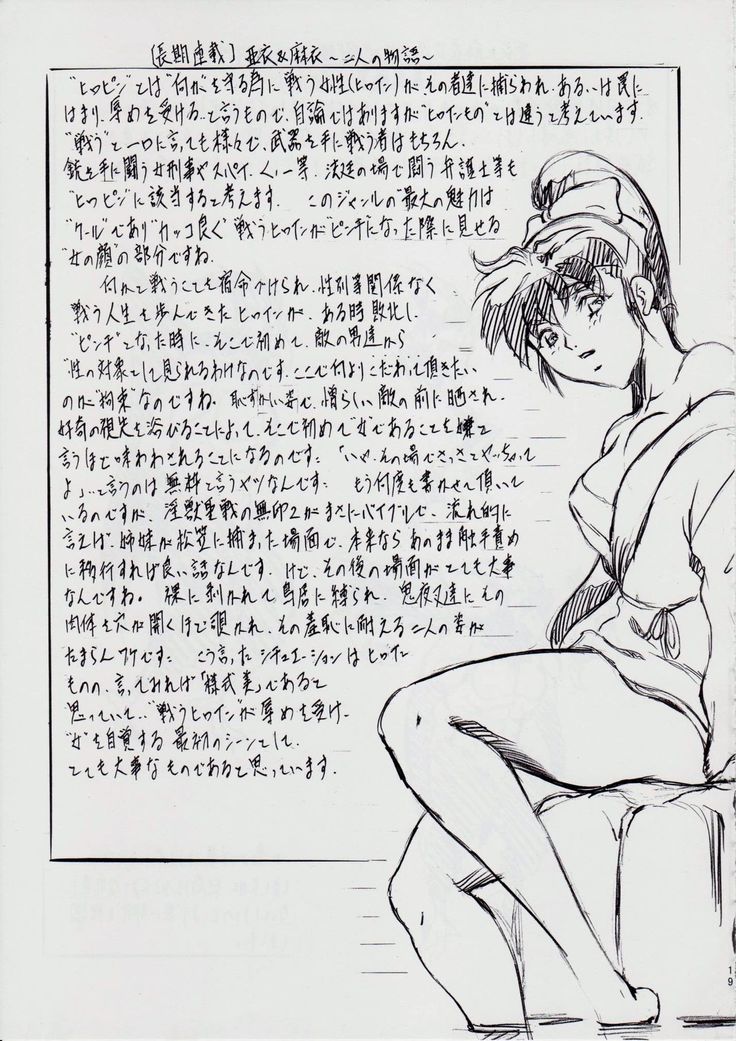 〔長期連載〕 亜衣&麻衣 〜二人の物語〜
"ヒロピン"とは"何か"を守る為に戦う女性(ヒロイン)が、その者達に捕らわれ、あるいは罠に
はまり、辱めを受ける…と言うもので、自論ではありますが"ヒロインもの"とは違うと考えています。
"戦う"と一口に言っても様々で、武器を手に戦う者はもちろん、
銃を手に闘う女刑事やスパイ、くノ一等、法廷の場で闘う弁護士等も
"ヒロピン"に該当すると考えます。 このジャンルの"最大の魅力は
"クール"であり"カッコ良く"戦うヒロインが"ピンチ"になった際に見せる
"女の顔"の部分ですね。
何かと戦うことを宿命づけられ、性別等関係なく
戦う人生を歩んできたヒロインが、ある時敗北し、
"ピンチ"となった時に、そこで初めて、敵の男達から
"性の対象として見られるわけなのです。ここで何よりこだわって頂きたい
のが"拘束"なのですね。恥ずかしい姿で、憎らしい敵の前に晒され、
好奇の視線を浴びることによって、そこで初めて"女"であることを嫌と
言うほど味わわされることになるのです。「いや、その場でさっさとやっちゃって
よ」…と言うのは無粋と言うヤツなんです。 もう何度も書かせて頂いて
いるのですが、淫獣聖戦の無印2がまさにバイブルで、流れ的に
言えば姉妹が に捕まった場面で、本来ならあのまま触手責め
に移行すれば良い話なんです。けど、その後の場面がとても大事
なんですね。 裸に剥かれて鳥居に縛られ、鬼夜叉達にその
肉体を穴が開くほど覗かれ、その羞恥に耐える二人の姿が
たまらんワケです。 こう言ったシチュエーションはヒロイン
ものの、言ってみれば「様式美」であると
思っていて、"戦うヒロイン"が辱めを受け、
"女"を自覚する最初のシーンとして、
とても大事なものであると思っています。
19